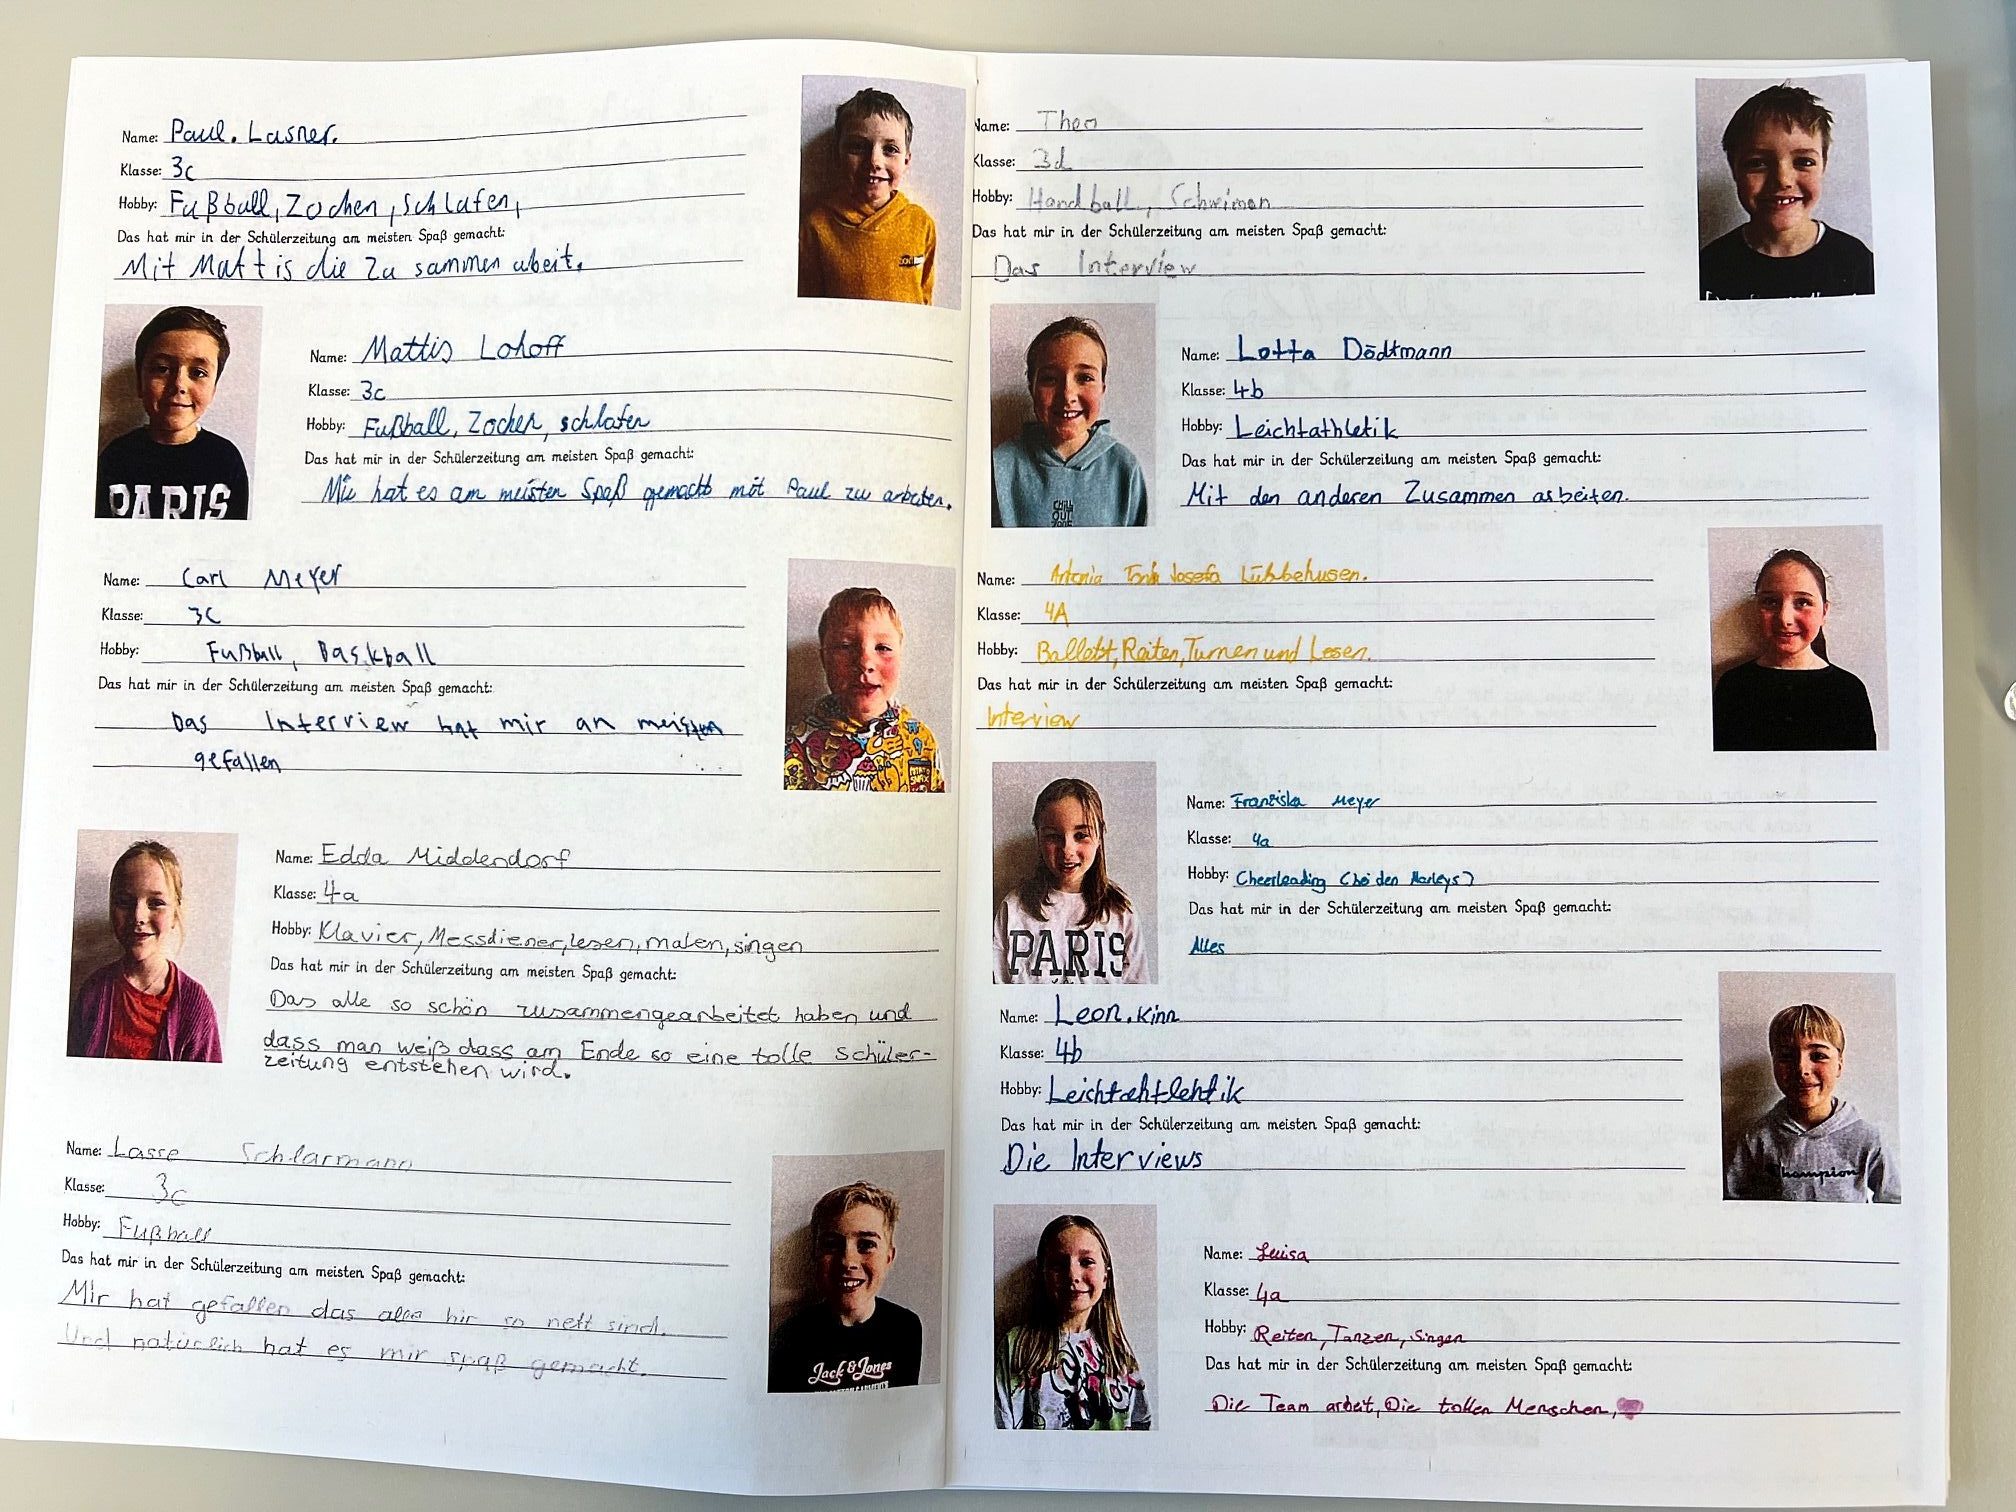 Name: Paul. Lasner.
Klasse: 3c
Hobby: Fußball, Zochen, schlafen,
Das hat mir in der Schülerzeitung am meisten Spaß gemacht:
Mit Mattis die Zu sammen abeit.
PARIS
Name: Mattis Lohoff
Klasse: 3c
Hobby: Fußball, Zocken, schlafen
Das hat mir in der Schülerzeitung am meisten Spaß gemacht:
Mir hat es am meisten Spaß gemacht mit Paul zu arbeiten.
Name: Carl Meyer
Klasse: 3C
Hobby: Fußball, Baskball
Das hat mir in der Schülerzeitung am meisten Spaß gemacht:
Das Interview hat mir an meisten
gefallen
Name: Edda Middendorf
Klasse: 4a
Hobby: Klavier, Messdiener, lesen, malen, singen
Das hat mir in der Schülerzeitung am meisten Spaß gemacht:
Das alle so schön zusammengearbeitet haben und
dass man weiß dass am Ende so eine tolle Schüler-
zeitung entstehen wird.
Name: Lasse Schlarmann
Klasse: 3c
Hobby: Fußball
Das hat mir in der Schülerzeitung am meisten Spaß gemacht:
Mir hat gefallen das alle hir so nett sind.
Und natürlich hat es mir spaß gemacht.
Jack & Jones
Name: Theo
Klasse: 3d
Hobby: Handball, Schwimen
Das hat mir in der Schülerzeitung am meisten Spaß gemacht:
Das Interview
CHILL
OUT
ZONE
Name: Lotta Dödtmann
Klasse: 4b
Hobby: Leichtathletik
Das hat mir in der Schülerzeitung am meisten Spaß gemacht:
Mit den anderen Zusammen arbeiten.
Name: Antonia Tonia Josefa Lübbehusen.
Klasse: 4A
Hobby: Ballett, Reiten, Turnen und Lesen.
Das hat mir in der Schülerzeitung am meisten Spaß gemacht:
Interview
PARIS
Name: Franziska Meyer
Klasse: 4a
Hobby: Cheerleading (bei den Marleys)
Das hat mir in der Schülerzeitung am meisten Spaß gemacht:
Alles
Name: Leon. Kinn
Klasse: 4b
Hobby: Leichtahtlehtik
Das hat mir in der Schülerzeitung am meisten Spaß gemacht:
Die Interviews
Champion
Name: Luisa
Klasse: 4a
Hobby: Reiten, Tanzen, Singen
Das hat mir in der Schülerzeitung am meisten Spaß gemacht:
Die Team arbeit, Die tollen Menschen,